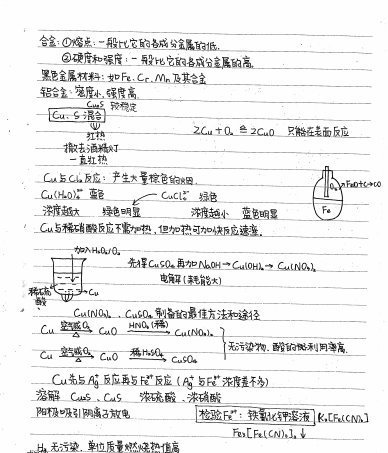 合金：①熔点：一般比它的各成分金属的低.
②硬度和强度：一般比它的各成分金属的高.
黑色金属材料：如Fe、Cr、Mn及其合金
铝合金：密度小、强度高.
CuS 较稳定
Cu、S混合
红热
撤去酒精灯
一直红热
2Cu + O₂ ≙ 2CuO 只能在表面反应
Cu与Cl₂反应：产生大量棕色的烟.
Cu(H₂O)₄²⁺ 蓝色 CuCl₄²⁻ 绿色
浓度越大 绿色明显 浓度越小 蓝色明显
O₂ Fe
Cu与稀硝酸反应不需加热，但加热可加快反应速率.
加入H₂O₂/O₂
稀硫酸 Cu
先得CuSO₄再加NaOH→Cu(OH)₂→Cu(NO₃)₂
电解(耗能大)
Cu(NO₃)₂、CuSO₄制备的最佳方法和途径
Cu 空气或O₂ △ → CuO HNO₃(稀) → Cu(NO₃)₂
Cu 空气或O₂ △ → CuO 稀H₂SO₄ → CuSO₄
无污染物、酸的利用率高.
Cu先与Ag⁺反应再与Fe³⁺反应 (Ag⁺与Fe³⁺浓度差不多)
溶解 CuS、CuS 浓硫酸、浓硝酸
阳极吸引阴离子放电
检验Fe²⁺：铁氰化钾溶液 K₃[Fe(CN)₆]
Fe₃[Fe(CN)₆]₂↓
H₂ 无污染、单位质量燃烧热值高